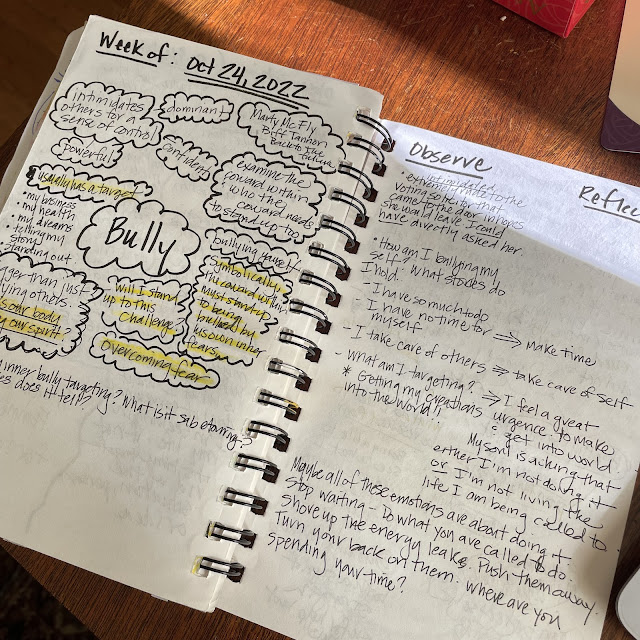 Week of: Oct 24, 2022
Intimidates
others for a
sense of control
dominant
Marty McFly
Biff Tannor
Back to the
Future
Powerful
Confident
Examine the
coward within
who the
coward needs
to stand up to
usually has a target
• my business
• my health
• my dreams
• telling my
story
• showing out
Bully
bullying yourself
symbolically
a coward who
must submit
to being
bullied by
his own inner
person
will I stand
up to this
challenge
overcoming fear
than just
others.
our body
our spirit?
inner bully targeting? What is it sabotaging?
does it tell?
Observe
Reflec
related to the
came to the door
She would leave. I could
have directly asked her.
- How am I bullying my
self? What stories do
I hold
- I have so much to do
- I have no time for ⇒ make time
myself
- I take care of others ⇒ take care of self
- What am I targeting? ⇒ I feel a great
* Getting my creations urgence to make
into the world!! & get into world
My soul is aching that
either I'm not doing it
or I'm not living the
life I am being called to.
Maybe all of these emotions are about doing it.
Stop waiting - Do what you are called to do.
Shove up the energy leaks. Push them away.
Turn your back on them. Where are you
spending your time?